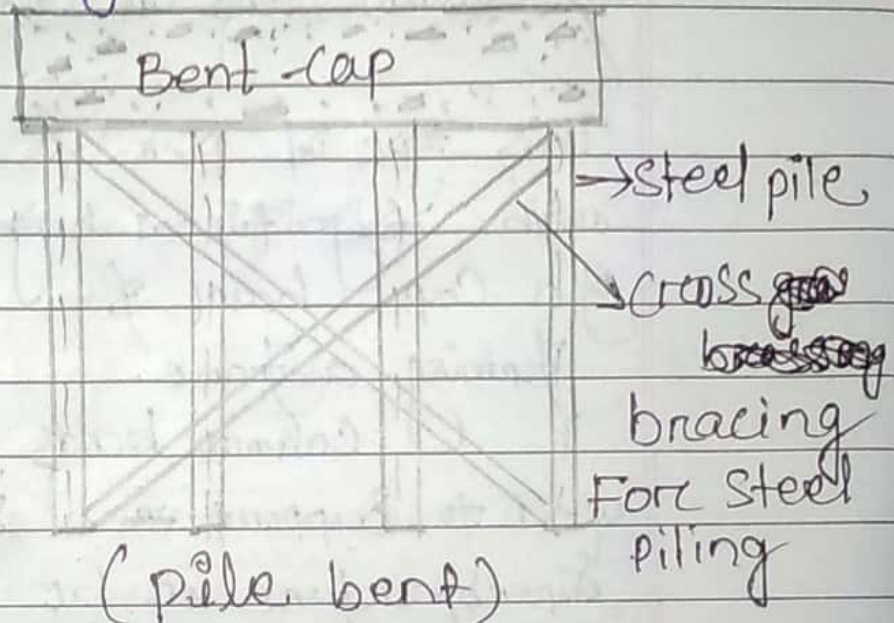 Bent-Cap
→Steel pile
Cross
bracing
For Steel
piling
(pile bent)